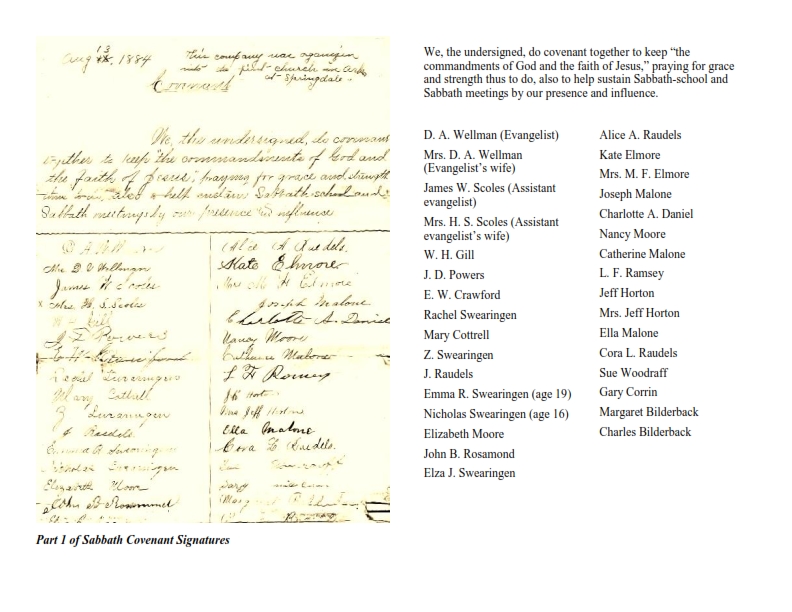 Aug 13, 1884
this company was organized
into the first church in Ark
at Springdale.
Covenant
We, the undersigned, do covenant
together to keep "the commandments of God and
the faith of Jesus," praying for grace and strength
thus to do, also to help sustain Sabbath-school and
Sabbath meetings by our presence and influence
Mrs D A Wellman
James W Scoles
x Mrs H. S. Scoles
W H Gill
J D Powers
Rachel Swearingen
Mary Cottrell
Z Swearingen
J. Raedels
Emma R Swearingen
Nicholas Swearingen
Elizabeth Moore
Alice A Raedels.
Kate Elmore
Mrs M F Elmore
Joseph Malone
Charlotte A. Daniel
Nancy Moore
Catherine Malone
L F Ramsey
Jeff Horton
Mrs Jeff Horton
Ella Malone
Cora L Raedels.
Part 1 of Sabbath Covenant Signatures
We, the undersigned, do covenant together to keep “the
commandments of God and the faith of Jesus,” praying for grace
and strength thus to do, also to help sustain Sabbath-school and
Sabbath meetings by our presence and influence.
D. A. Wellman (Evangelist)
Mrs. D. A. Wellman
(Evangelist’s wife)
James W. Scoles (Assistant
evangelist)
Mrs. H. S. Scoles (Assistant
evangelist’s wife)
W. H. Gill
J. D. Powers
E. W. Crawford
Rachel Swearingen
Mary Cottrell
Z. Swearingen
J. Raudels
Emma R. Swearingen (age 19)
Nicholas Swearingen (age 16)
Elizabeth Moore
John B. Rosamond
Elza J. Swearingen
Alice A. Raudels
Kate Elmore
Mrs. M. F. Elmore
Joseph Malone
Charlotte A. Daniel
Nancy Moore
Catherine Malone
L. F. Ramsey
Jeff Horton
Mrs. Jeff Horton
Ella Malone
Cora L. Raudels
Sue Woodraff
Gary Corrin
Margaret Bilderback
Charles Bilderback